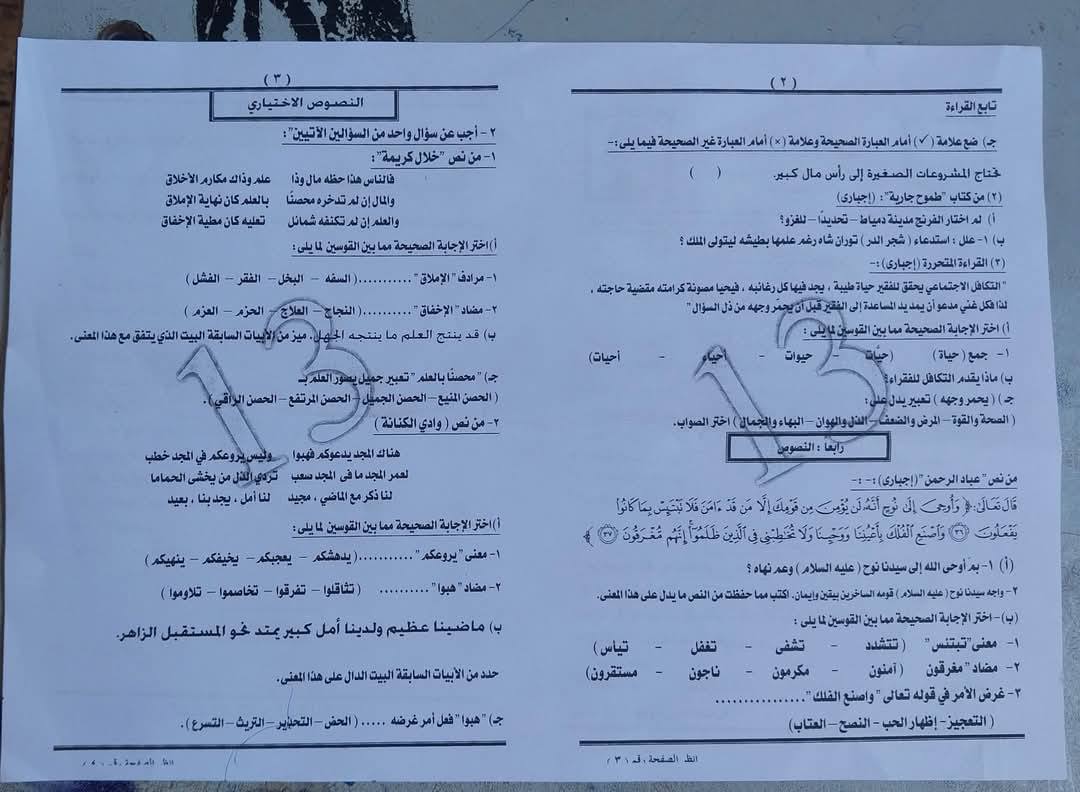 ( ٢ )
تابع القراءة
جـ) ضع علامة (✓) أمام العبارة الصحيحة وعلامة (×) أمام العبارة غير الصحيحة فيما يلى:-
تحتاج المشروعات الصغيرة إلى رأس مال كبير. (     )
(٢) من كتاب "طموح جارية": (إجبارى)
أ) لم اختار الفرنج مدينة دمياط – تحديدًا – للغزو؟
ب) ١- علل : استدعاء ( شجر الدر ) توران شاه رغم علمها بطيشه ليتولى الملك ؟
(٣) القراءة المتحررة (إجبارى):-
"التكافل الاجتماعي يحقق للفقير حياة طيبة ، يجد فيها كل رغائبه ، فيحيا مصونة كرامته مقضية حاجته ،
لذا فكل غني مدعو أن يمد يد المساعدة إلى الفقير قبل أن يحمّر وجهه من ذل السؤال"
أ) اختر الإجابة الصحيحة مما بين القوسين لما يلى :
١- جمع ( حياة ) (حيّات – حيوات – أحياء – أحيات)
ب) ماذا يقدم التكافل للفقراء؟
جـ) ( يحمر وجهه ) تعبير يدل على:
( الصحة والقوة – المرض والضعف – الذل والهوان – البهاء والجمال ) اختر الصواب.
رابعاً : النصوص
من نص "عباد الرحمن" (إجبارى):- :-
قَالَ تَعَالَىٰ: ﴿ وَأُوحِىَ إِلَىٰ نُوحٍ أَنَّهُۥ لَن يُؤْمِنَ مِن قَوْمِكَ إِلَّا مَن قَدْ ءَامَنَ فَلَا تَبْتَئِسْ بِمَا كَانُوا۟
يَفْعَلُونَ ﴿٣٦﴾ وَٱصْنَعِ ٱلْفُلْكَ بِأَعْيُنِنَا وَوَحْيِنَا وَلَا تُخَٰطِبْنِى فِى ٱلَّذِينَ ظَلَمُوٓا۟ إِنَّهُم مُّغْرَقُونَ ﴿٣٧﴾ ﴾
(أ) ١- بم أوحى الله إلى سيدنا نوح ( عليه السلام ) وعم نهاه ؟
٢- واجه سيدنا نوح ( عليه السلام ) قومه الساخرين بيقين وإيمان. اكتب مما حفظت من النص ما يدل على هذا المعنى.
(ب)- اختر الإجابة الصحيحة مما بين القوسين لما يلى :
١- معنى "تبتئس" ( تتشدد – تشفى – تغفل – تيأس )
٢- مضاد "مغرقون ( آمنون – مكرمون – ناجون – مستقرون)
٣- غرض الأمر في قوله تعالى "واصنع الفلك"................
( التعجيز – إظهار الحب – النصح – العتاب)
انظر الصفحة رقم ( ٣ )
( ٣ )
النصوص الاختياري
٢- أجب عن سؤال واحد من السؤالين الآتيين":
١- من نص "خلال كريمة":
فالناس هذا حظه مال وذا علم وذاك مكارم الأخلاق
والمال إن لم تدخره محصنًا بالعلم كان نهاية الإملاق
والعلم إن لم تكتنفه شمائل تعليه كان مطية الإخفاق
أ) اختر الإجابة الصحيحة مما بين القوسين لما يلى:
١- مرادف "الإملاق" ............( السفه – البخل – الفقر – الفشل )
٢- مضاد "الإخفاق" ............( النجاح – العلاج – الحزم – العزم )
ب) قد ينتج العلم ما ينتجه الجهل. ميز من الأبيات السابقة البيت الذي يتفق مع هذا المعنى.
جـ) "محصنًا بالعلم" تعبير جميل يصور العلم بـ
( الحصن المنيع – الحصن الجميل – الحصن المرتفع – الحصن الراقي ).
٢- من نص ( وادي الكنانة )
هناك المجد يدعوكم فهبوا وليس يروعكم في المجد خطب
لعمر المجد ما فى المجد صعب تردي الذل من يخشى الحماما
لنا ذكر مع الماضي ، مجيد لنا أمل ، يجد بنا ، بعيد
أ) اختر الإجابة الصحيحة مما بين القوسين لما يلى:
١- معنى "يروعكم" ............( يدهشكم – يعجبكم – يخيفكم – ينهيكم )
٢- مضاد "هبوا" .......... ( تثاقلوا – تفرقوا – تخاصموا – تلاوموا )
ب) ماضينا عظيم ولدينا أمل كبير يمتد نحو المستقبل الزاهر.
حدد من الأبيات السابقة البيت الدال على هذا المعنى.
جـ) "هبوا" فعل أمر غرضه ..... ( الحض – التحذير – التريث – التسرع ).
انظر الصفحة رقم ( ٤ )
13
13